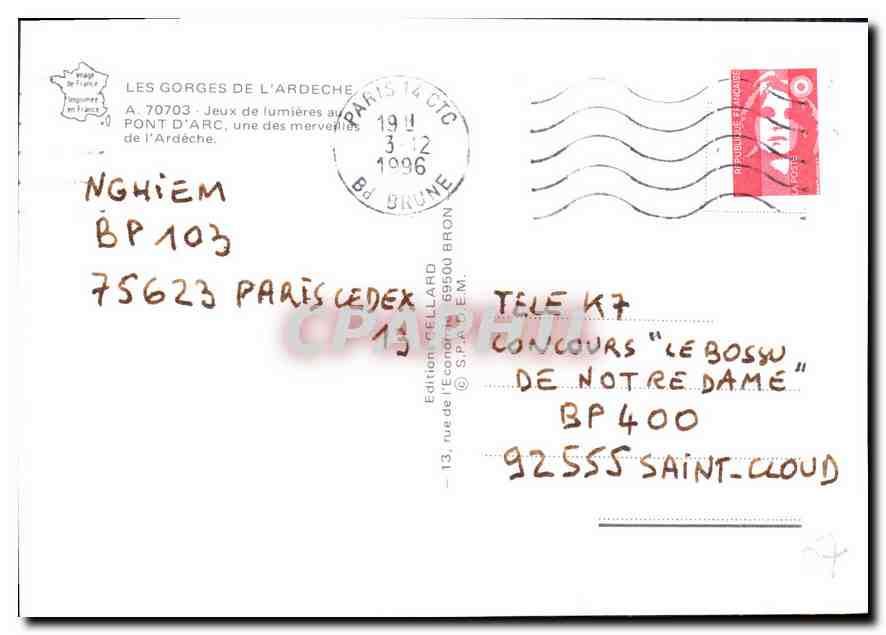 Image
de France
Imprimée
en France
LES GORGES DE L'ARDECHE
A. 70703 - Jeux de lumières au
PONT D'ARC, une des merveilles
de l'Ardèche.
PARIS 14 CTC
19 H
3-12
1996
Bd BRUNE
REPUBLIQUE FRANÇAISE
LA POSTE
NGHIEM
BP 103
75623 PARIS CEDEX
13
Edition CELLARD
13, rue de l'Economie 69500 BRON
© S.P.A.D.E.M.
CPAPHIL
TELE K7
CONCOURS "LE BOSSU
DE NOTRE DAME"
BP 400
92555 SAINT-CLOUD